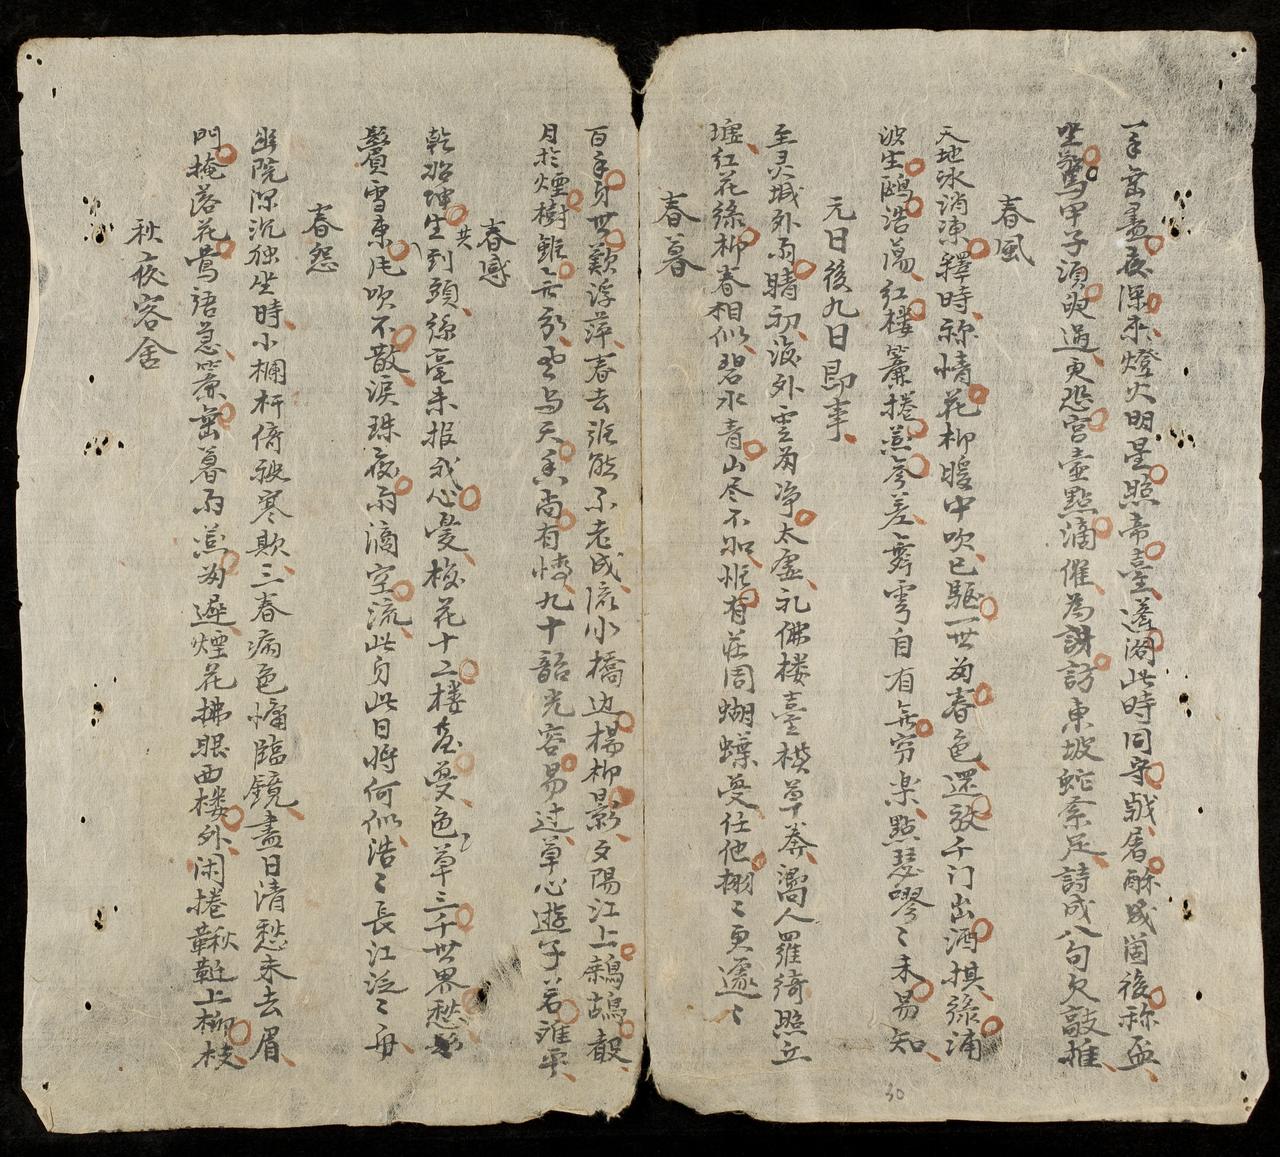 一年宗尽夜深来燈火明星照帝臺蓬閣此時同守戢屠酥幾箇後称盃
坐驚甲子須臾過更恐宮壶點滴催為謝訪東坡蛇祭足詩成八句欠敲推
春風
天地冰消凍釋時称情花柳暖中吹已驅一世為春色還放千门出酒棋緑浦
波生鷗浩蕩紅楼簾捲燕参差舞雩自有無穷楽點瑟嘐々未易知
元日後九日即事
至灵城外雨晴初海外雲為净太虛礼佛楼臺模草莽濁人羅綺照丘
墟红花緑柳春相似碧水青山尽不知惟有莊周蝴蝶受任他栩々更遽々
春暮
百年身世歎浮萍春去誰能不老成流小橋边楊柳影夕陽江上鷓鴣聲
月於煙樹雖無力雲与天香尚有情九十韶光容易过草心遊子若誰平
春感
乾始坤生到頭絲毫未报我心憂梅花十二楼䑓憂色草三千世界愁
鬢雪東风吹不散淚珠夜雨滴空流此身此日將何似浩々長江泛々舟
春怨
幽院深沉独坐時小欄杆倚被寒欺三春病色慵臨鏡盡日清愁未去眉
門掩落花鶯語急簾垂暮雨燕為遲煙花拂眼西楼外闲捲鞦韆上柳枝
秋夜客舍